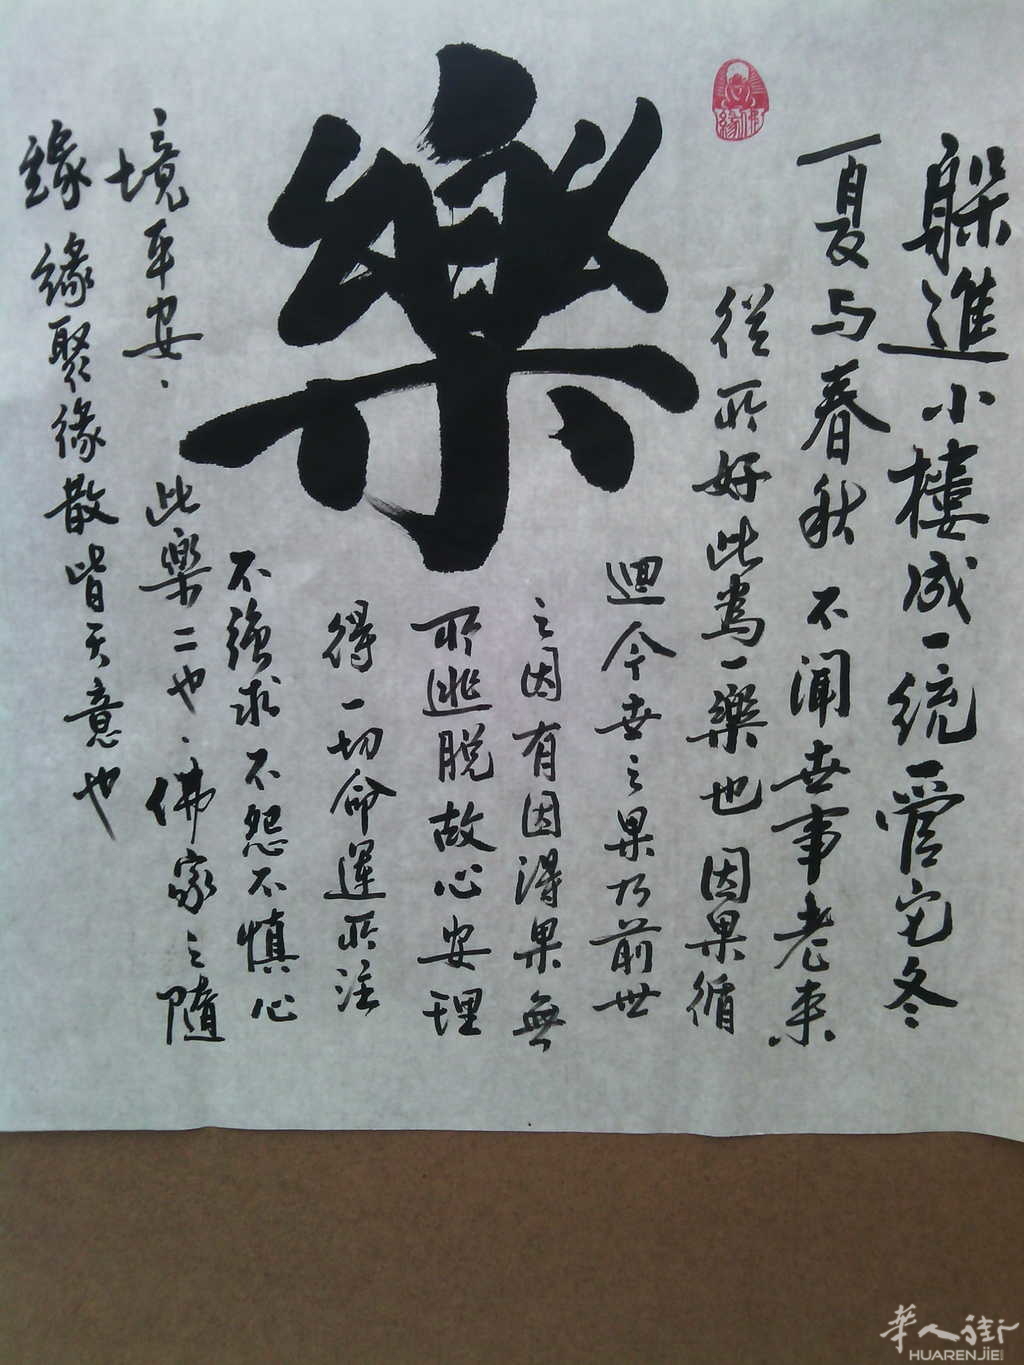 樂
佛緣
躲進小樓成一統管它冬
夏与春秋不闻世事老来
從所好此為一樂也因果循
迴今世之果乃前世
之因有因得果無
所逃脱故心安理
得一切命運所注
不強求不怨不慎心
境平安、此樂二也、佛家之隨
緣緣聚緣散皆天意也
華人街
HUARENJIE